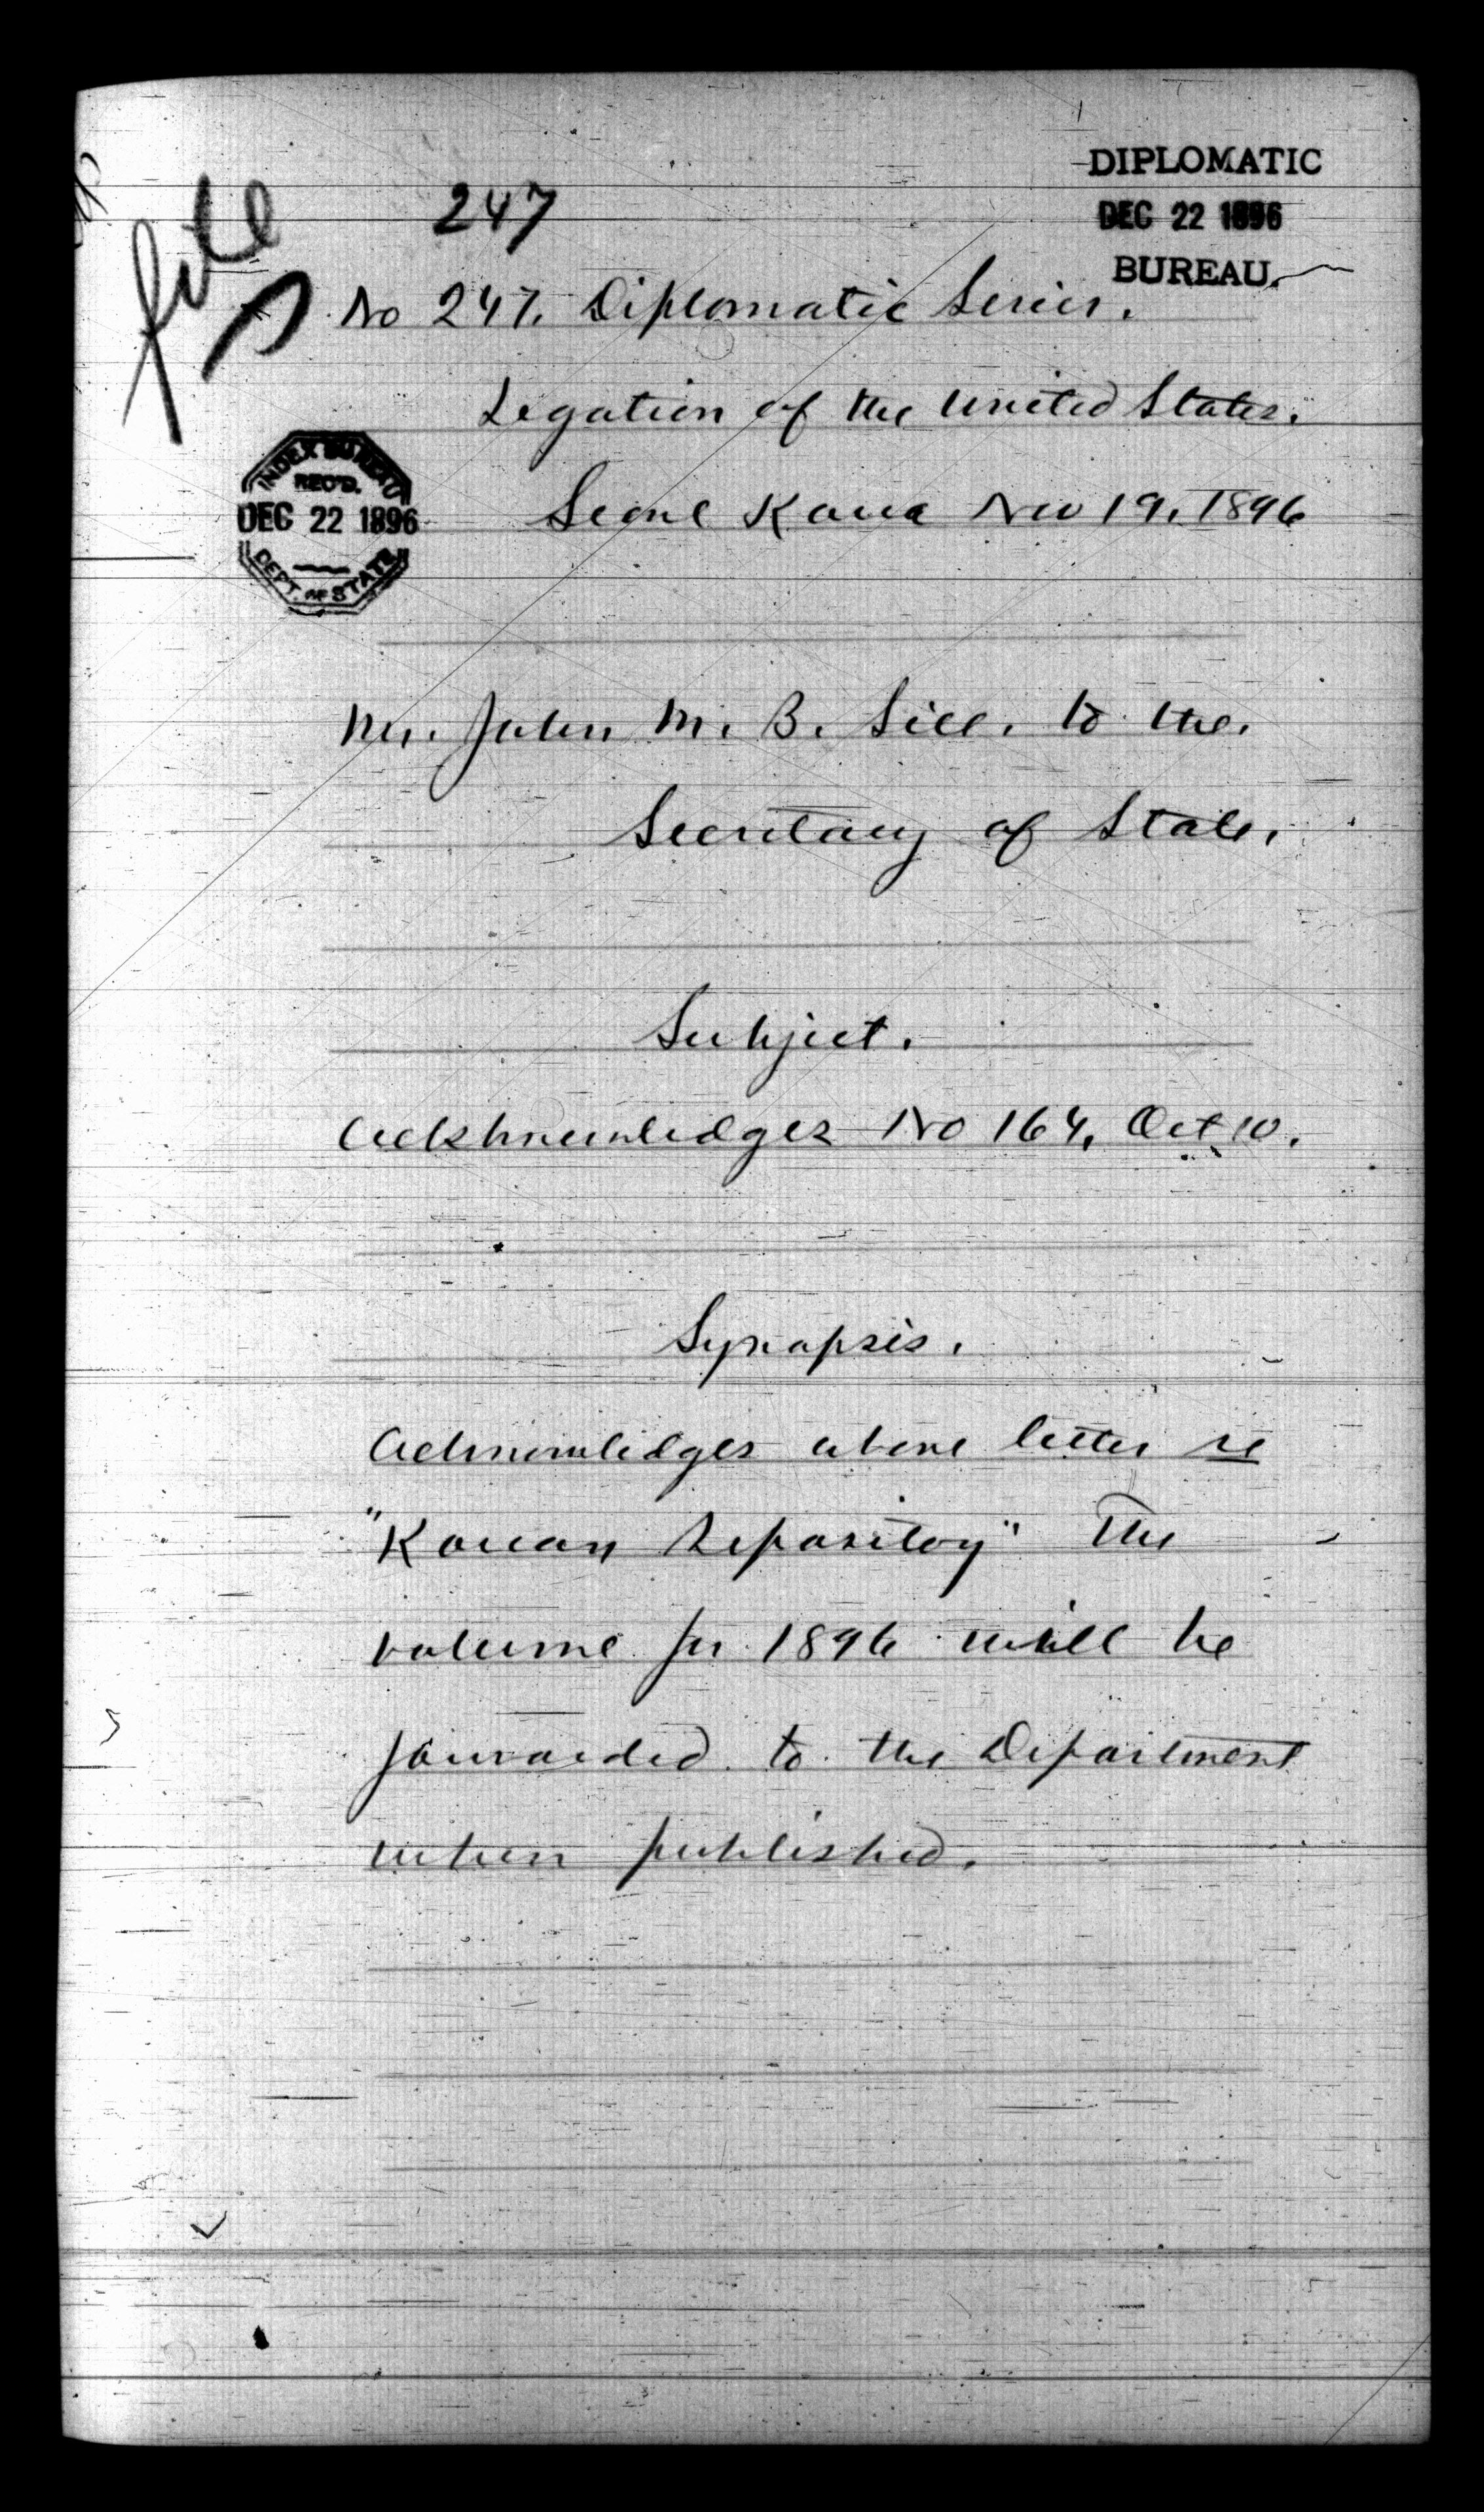 file
247
DIPLOMATIC
DEC 22 1896
BUREAU.
No 247. Diplomatic Series.
Legation of the United States.
INDEX BUREAU
REC'D.
DEC 22 1896
DEPT. OF STATE
Seoul Korea Nov 19. 1896
Mr. John M. B. Sill. to the.
Secretary of State.
Subject.
Ackknowledges No 164. Oct 10.
Synopsis.
Acknowledges above letter re
"Korean Repository" The
volume for 1896 will be
forwarded to the Department
when published.